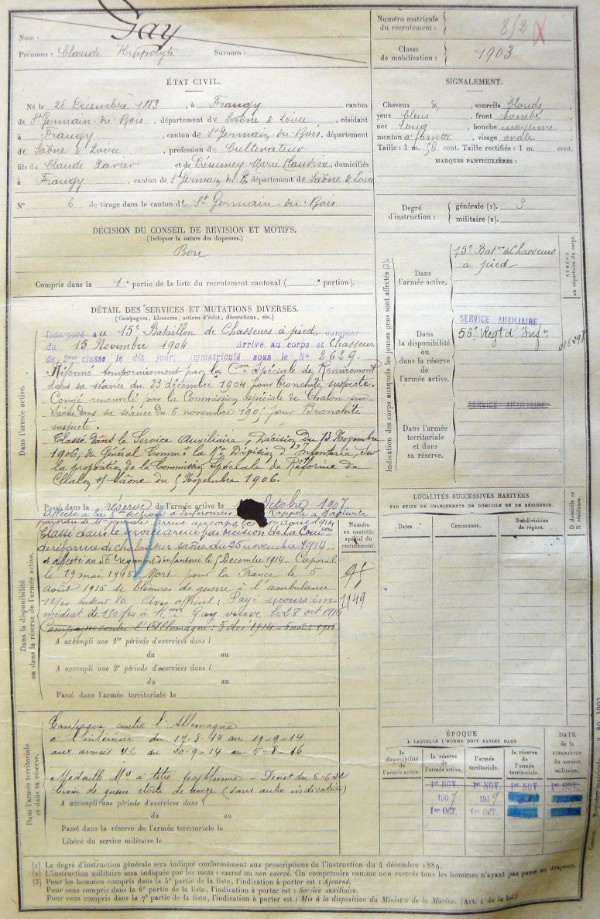 Nom : Gay
Prénoms : Claude Hippolyte Surnom :
Numéro matricule du recrutement : 812
Classe de mobilisation : 1903
ÉTAT CIVIL.
Né le 26 Décembre 1883, à Frangy canton
de St Germain du Bois, département de Saône & Loire, résidant
à Frangy, canton de St Germain du Bois, département
de Saône & Loire, profession de Cultivateur
fils de Claude Xavier et de Marie Claudine, domiciliés
à Frangy, canton de St Germain du B. département de Saône & Loire
N° 6 de tirage dans le canton de St Germain-du-Bois
SIGNALEMENT.
Cheveux & sourcils blonds
yeux bleus front bombé
nez long bouche moyenne
menton visage ovale
Taille : 1 m. 56 cent. Taille rectifiée : 1 m. cent.
MARQUES PARTICULIÈRES :
Degré d'instruction : générale (1). 3
militaire (2).
DÉCISION DU CONSEIL DE REVISION ET MOTIFS.
(Indiquer la nature des dispenses.)
Bon
Compris dans la 1re partie de la liste du recrutement cantonal ( portion).
DÉTAIL DES SERVICES ET MUTATIONS DIVERSES.
(Campagnes, blessures, actions d'éclat, décorations, etc.)
Dans l'armée active.
Incorporé au 15e Bataillon de Chasseurs à pied, à compter
du 15 Novembre 1904 arrivé au corps et Chasseur
de 2me classe le dit jour, immatriculé sous le N° 2629.
Réformé temporairement par la Con Spéciale de Remiremont
dans sa séance du 23 décembre 1904 pour bronchite suspecte.
Congé renouvelé par la Commission Spéciale de Chalon sur
Saône dans sa séance du 6 novembre 1905 pour Bronchite
suspecte.
Classé dans le Service Auxiliaire, Décision du 13 Novembre
1906, du Général Commt la Division d'Infanterie, sur
la proposition de la Commission Spéciale de Réforme de
Chalon s/ Saône du 5 Novembre 1906.
Indication des corps auxquels les jeunes gens sont affectés (3).
Dans l'armée active.
15e Batn de Chasseurs à pied
Dans la disponibilité ou dans la réserve de l'armée active.
SERVICE AUXILIAIRE
55e Régt d'Infie
SERVICE AUXILIAIRE
Dans l'armée territoriale et dans sa réserve.
NUMÉRO au répertoire du corps.
Dans la disponibilité ou dans la réserve de l'armée active.
Passé dans la réserve de l'armée active le Octobre 1907.
Classé dans le service armé par décision de la Con
de réforme de Chalon sur Saône du 25 novembre 1914
et affecté au 56e régiment d'infanterie le 5 Décembre 1914. Caporal
le 29 mai 1915. Mort pour la France le 5
août 1915 de blessures de guerre à l'ambulance
Avis officiel. Payé secours im-
médiat de 150 frs à Mme Gay veuve le 28 oct 1915
Campagne contre l'Allemagne : 5 déc 1914
Numéro au contrôle spécial du recrutement.
1149
A accompli une 1re période d'exercices dans l
du au
A accompli une 2e période d'exercices dans l
du au
Passé dans l'armée territoriale le
LOCALITÉS SUCCESSIVES HABITÉES
PAR SUITE DE CHANGEMENTS DE DOMICILE OU DE RÉSIDENCE.
Dates. Communes. Subdivision de région. D domicile ou R résidence.
Dans l'armée territoriale et dans sa réserve.
Campagne contre l'Allemagne
à l'intérieur du 17-8-14 au 19-9-14
aux armées du 20-9-14 au 5-8-16
Médaille Mre à titre posthume
Croix de guerre étoile de bronze (sans autre indication)
A accompli une période d'exercices dans l
du au
Passé dans la réserve de l'armée territoriale le
Libéré du service militaire le
ÉPOQUE
À LAQUELLE L'HOMME DOIT PASSER DANS
la disponibilité de l'armée active. la réserve de l'armée active. l'armée territoriale. la réserve de l'armée territoriale.
DATE DE LA LIBÉRATION DU service militaire.
1er NOV.
1907
1er OCT.
(1) Le degré d'instruction générale sera indiqué conformément aux prescriptions de l'instruction du 4 décembre 1889.
(2) L'instruction militaire sera indiquée par les mots : exercé ou non exercé. On comprendra comme non exercés tous les hommes n'ayant pas passé au drapeau.
(3) Pour les hommes compris dans la 5e partie de la liste, l'indication à porter est : Ajourné.
Pour ceux compris dans la 6e partie de la liste, l'indication à porter est : Service auxiliaire.
Pour ceux compris dans la 7e partie de la liste, l'indication à porter est : Mis à la disposition du Ministre de la Marine. (Art. 4 de la loi.)